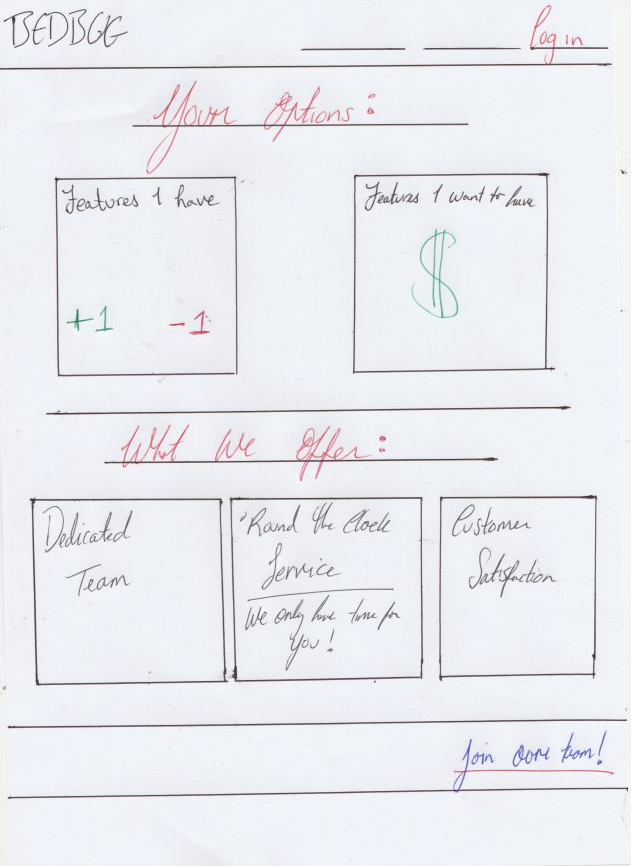 BEDBGG
Log in
Your Options:
Features I have
+1 -1
Features I want to have
$
What We Offer:
Dedicated
Team
'Round the Clock
Service
We only have time for
You!
Customer
Satisfaction
Join our team!